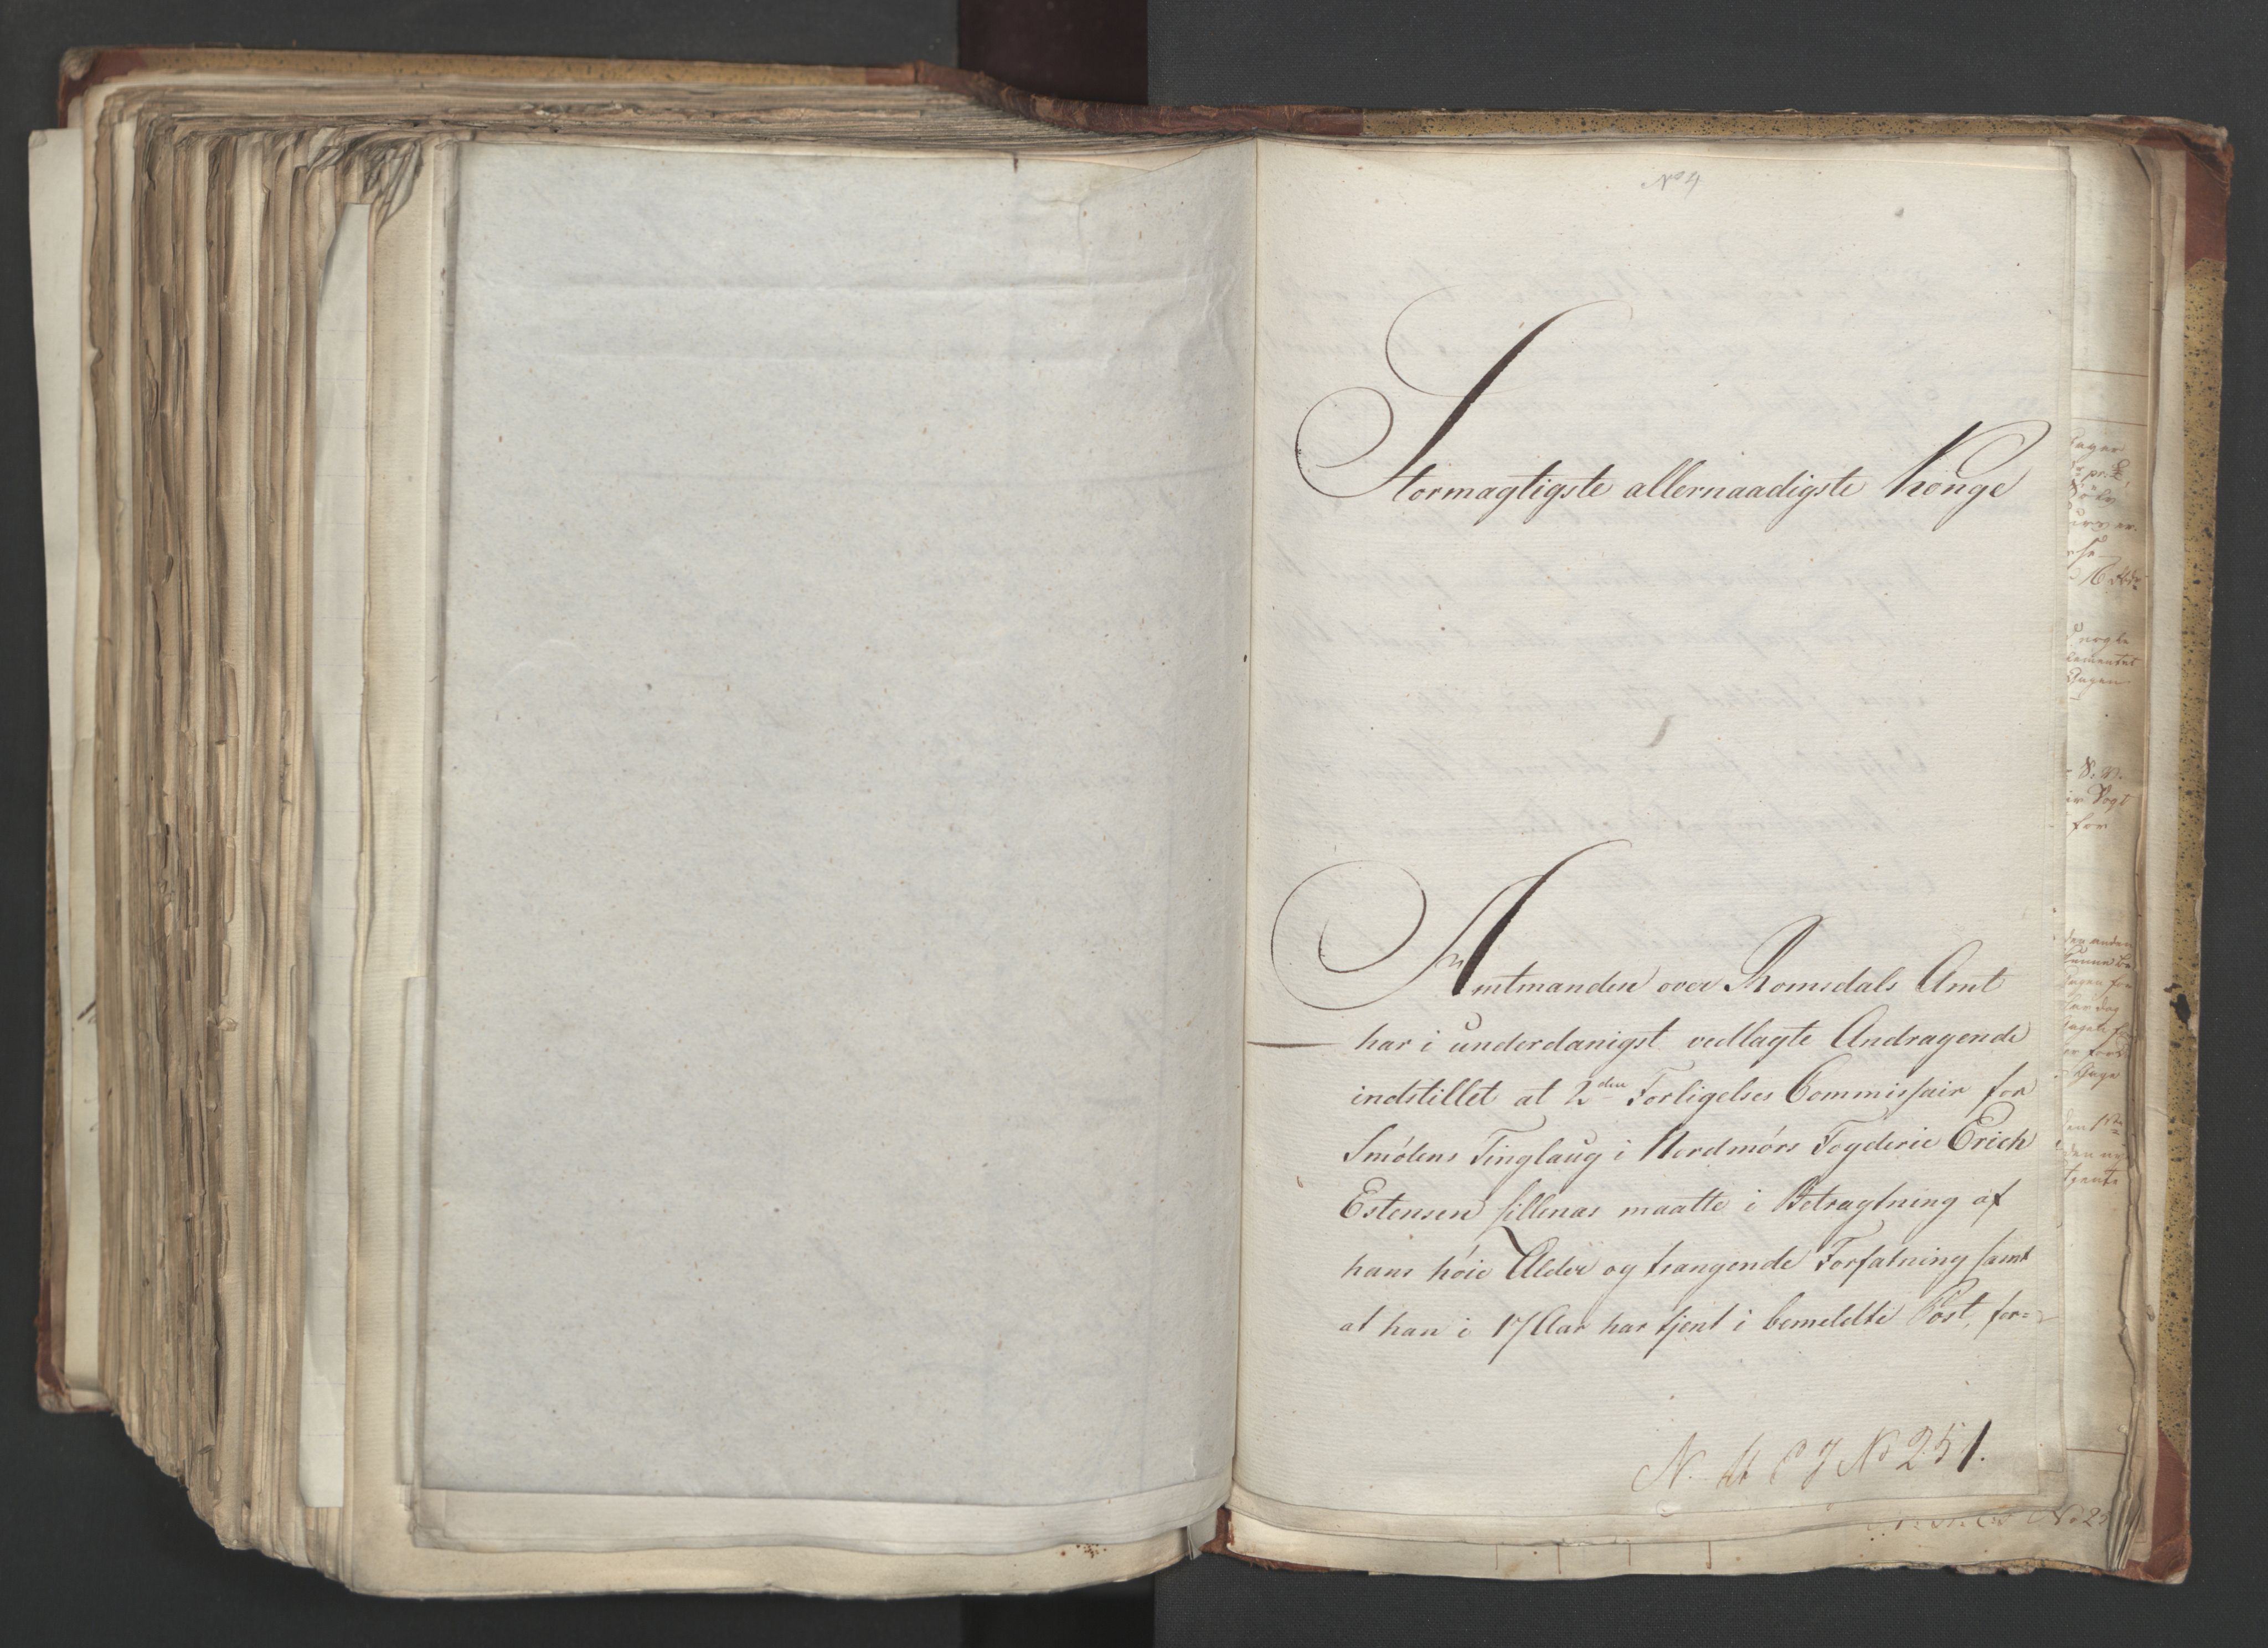 No 4
Stormagtigste allernaadigste Konge
Amtmanden over Romsdals Amt
har i underdanigst vedlagte Andragende
indstillet at 2den Forligelses Commissair for
Smólens Tinglaug i Nordmórs Fogderie Erich
Estensen Sillenas maatte i Betragtning af
hans hóie Alder og trangende Forfatning samt
at han i 17 Aar har tjent i bemeldte Post, for=
No 251.
pr.
Sølv
nogle
Gagen
Vogt
for
den anden
Gage
No 25